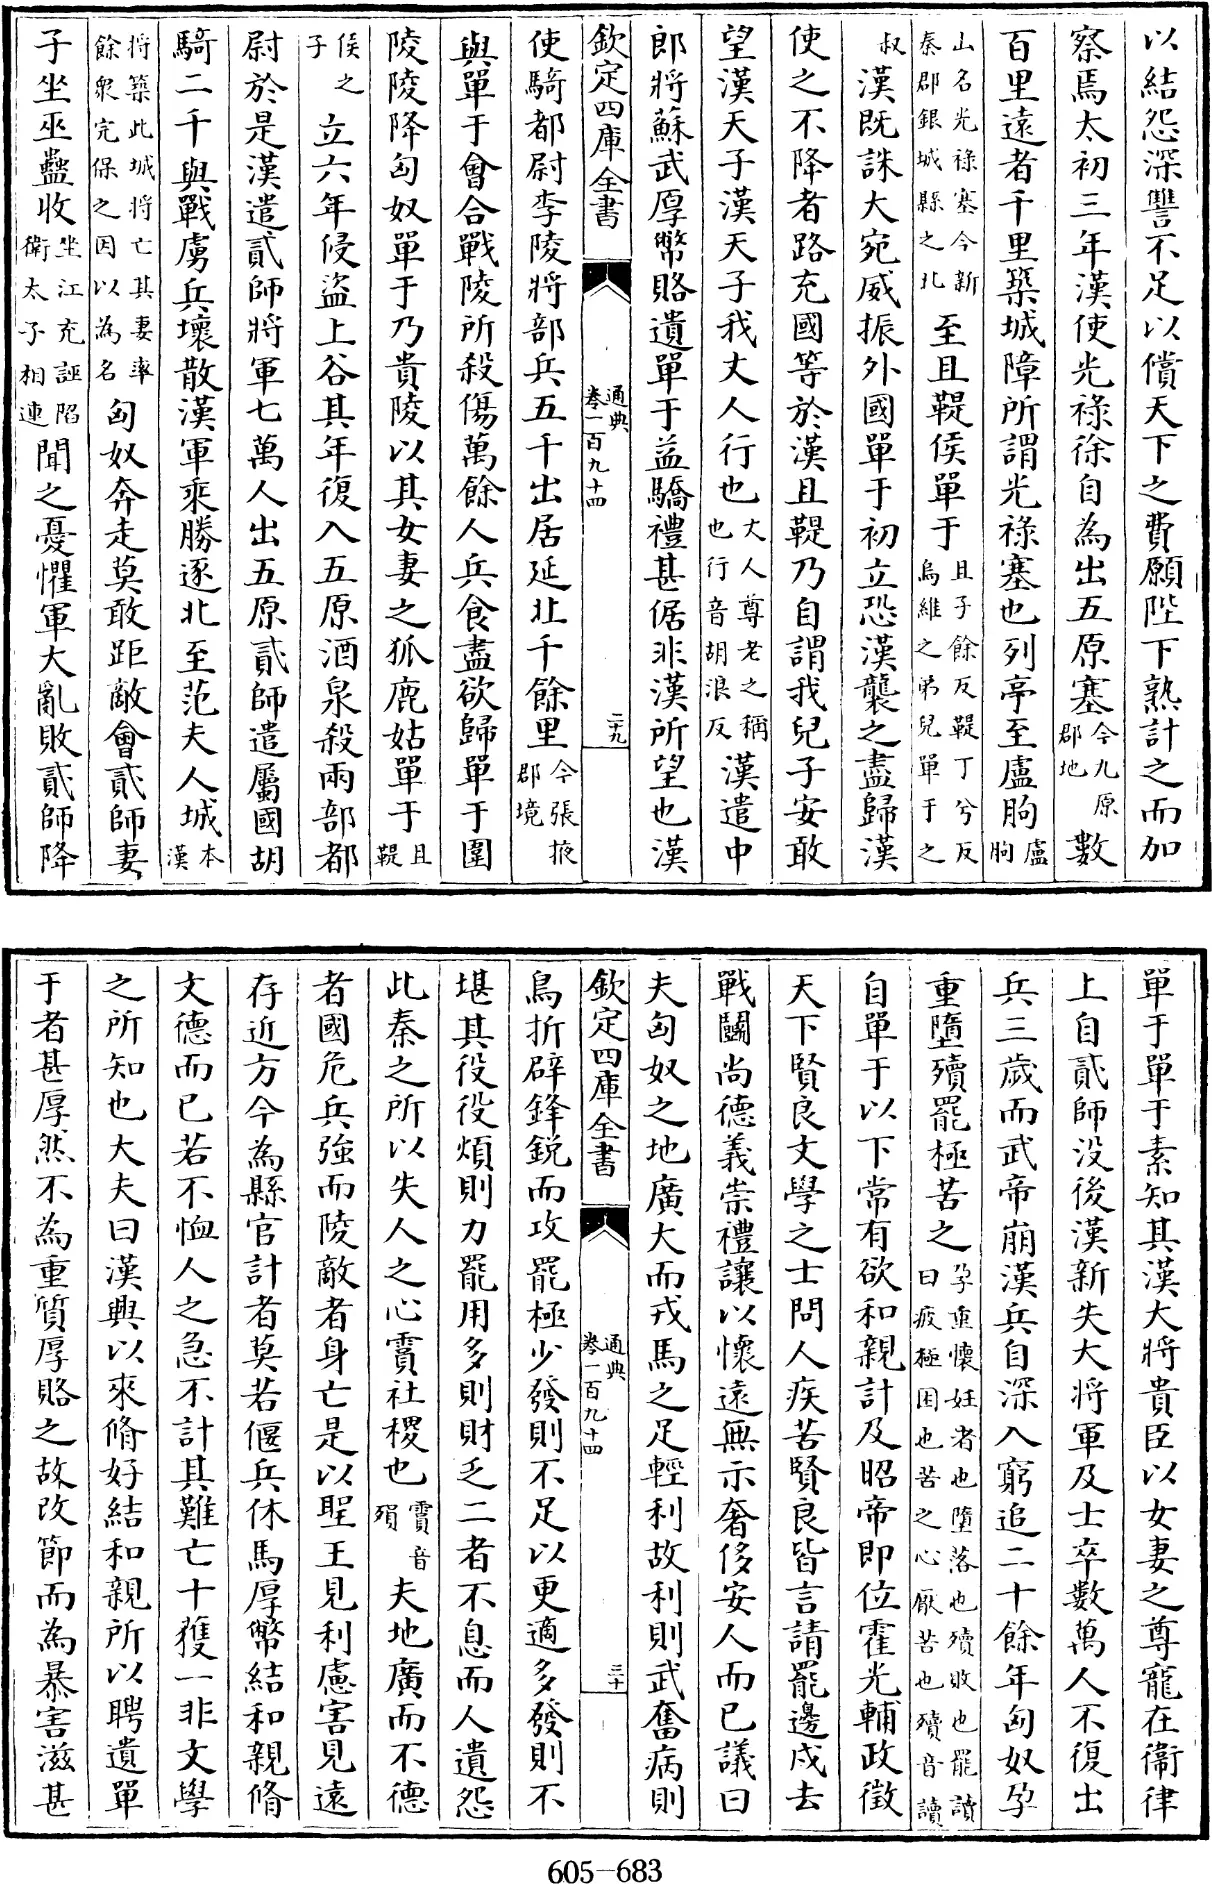 以結怨深讐不足以償天下之費願陛下熟計之而加
察焉太初三年漢使光祿徐自為出五原塞今九原郡地數
百里遠者千里築城障所謂光祿塞也列亭至盧朐盧朐
山名光祿塞今新秦郡銀城縣之北至且鞮侯單于且子餘反鞮丁兮反烏維之弟兒單于之
叔漢既誅大宛威振外國單于初立恐漢襲之盡歸漢
使之不降者路充國等於漢且鞮乃自謂我兒子安敢
望漢天子漢天子我丈人行也大人尊老之稱也行音胡浪反漢遣中
郎將蘇武厚幣賂遺單于益驕禮甚倨非漢所望也漢
欽定四庫全書 通典卷一百九十四 二十九
使騎都尉李陵將部兵五千出居延北千餘里今張掖郡境
與單于會合戰陵所殺傷萬餘人兵食盡欲歸單于圍
陵陵降匈奴單于乃貴陵以其女妻之狐鹿姑單于且鞮
侯之子立六年侵盜上谷其年復入五原酒泉殺兩部都
尉於是漢遣貳師將軍七萬人出五原貳師遣屬國胡
騎二千與戰虜兵壞散漢軍乘勝逐北至范夫人城本漢
將築此城將亡其妻率餘衆完保之因以為名匈奴奔走莫敢距敵會貳師妻
子坐巫蠱收坐江充誣陷衛太子相連聞之憂懼軍大亂敗貳師降
單于單于素知其漢大將貴臣以女妻之尊寵在衛律
上自貳師没後漢新失大將軍及士卒數萬人不復出
兵三歲而武帝崩漢兵自深入窮追二十餘年匈奴孕
重墮殰罷極苦之孕重懷妊者也墮落也殰敗也罷讀曰疲極困也苦之心厭苦也殰音讀
自單于以下常有欲和親計及昭帝即位霍光輔政徵
天下賢良文學之士問人疾苦賢良皆言請罷邊戍去
戰鬭尚德義崇禮讓以懷遠無示奢侈安人而已議曰
夫匈奴之地廣大而戎馬之足輕利故利則武奮病則
欽定四庫全書 通典卷一百九十四 三十
鳥折辟鋒銳而攻罷極少發則不足以更適多發則不
堪其役役煩則力罷用多則財乏二者不息而人遺怨
此秦之所以失人之心霣社稷也霣音殞夫地廣而不德
者國危兵強而陵敵者身亡是以聖王見利慮害見遠
存近方今為縣官計者莫若偃兵休馬厚幣結和親脩
文德而已若不恤人之急不計其難亡十獲一非文學
之所知也大夫曰漢興以來脩好結和親所以聘遺單
于者甚厚然不為重質厚賂之故改節而為暴害滋甚
605-683